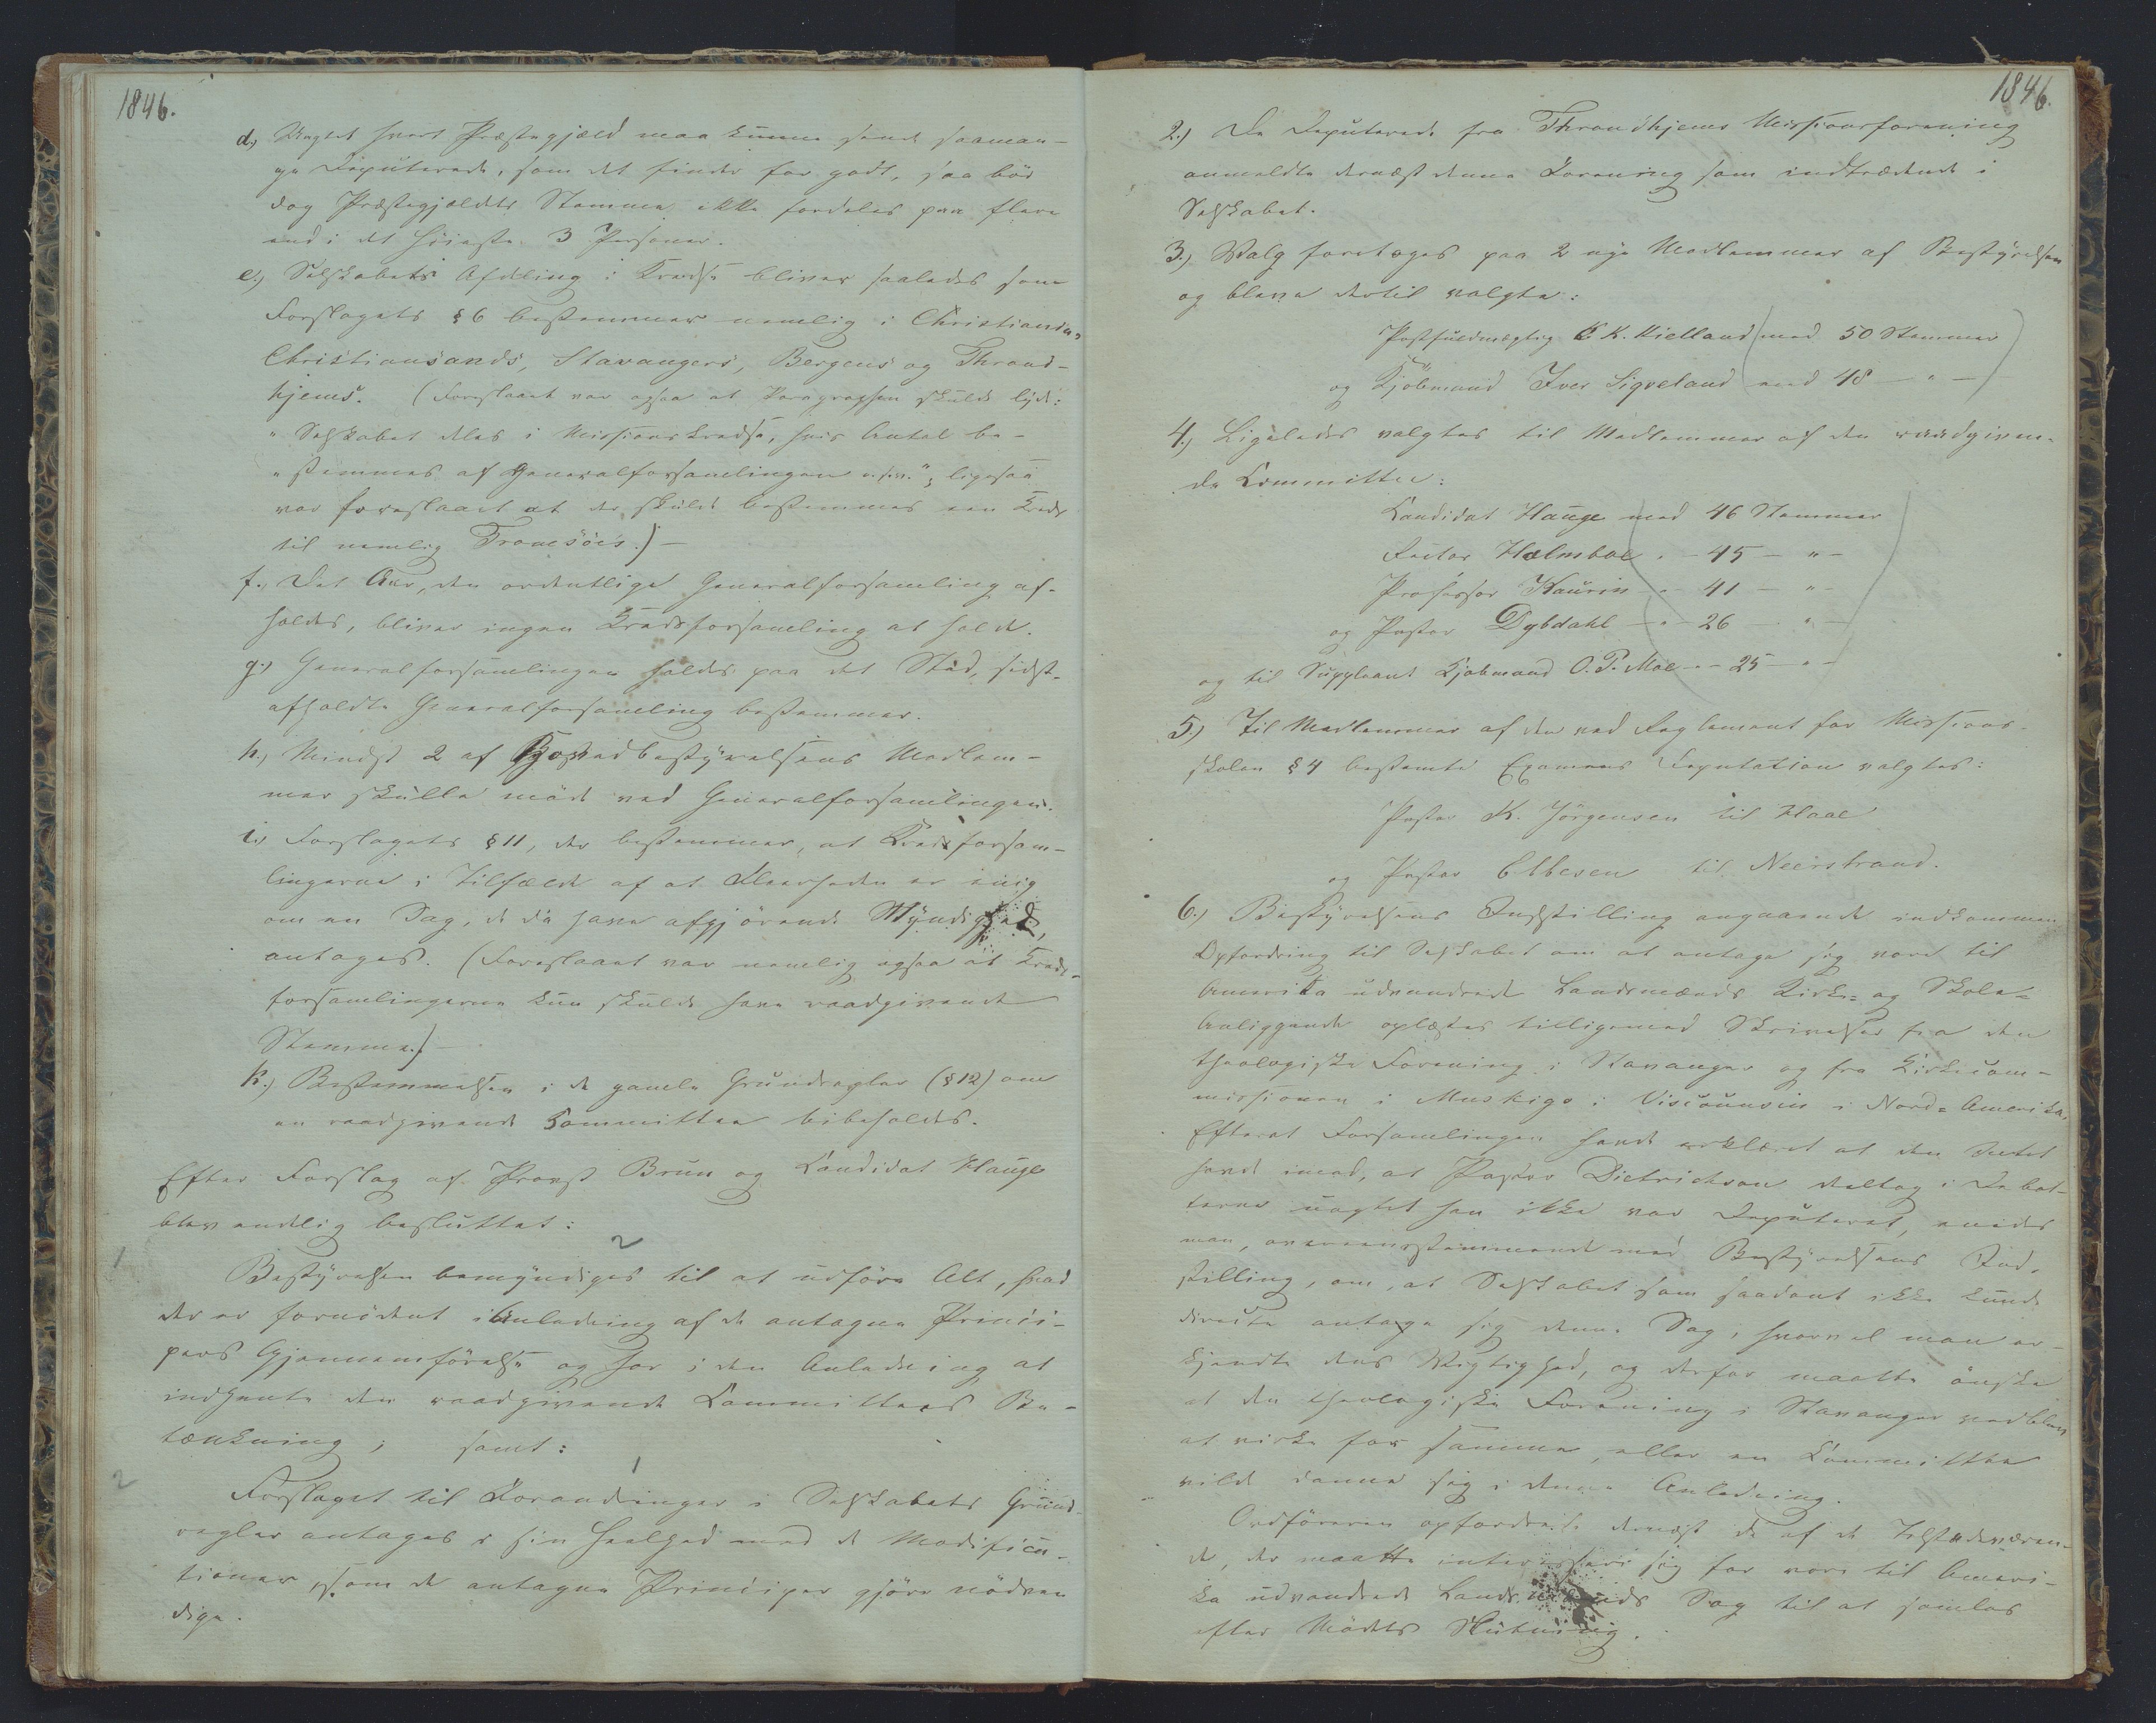 1846.
d.) Uagtet hvert Præstegjæld maa kunne sende saaman-
ge Deputerede, som det finder for godt, saa bör
dog Præstegjældets Stemme ikke fordeles paa flere
end i det höieste 3 Personer.
e.) Selskabets Afdeling i Kredse bliver saaledes som
Forslagets § 6 bestemmer nemlig i Christiania,
Christiansands, Stavangers, Bergens og Thrond-
hjems. (Foreslaaet var ogsaa at Paragraphen skulde lyde:
"Selskabet deles i Missionskredse, hvis Antal be-
"stemmes af Generalforsamlingen o.s.v."; ligesaa
var foreslaaet at der skulde bestemmes een Kreds
til nemlig Tromsöes.) —
f.) Det Aar, den ordentlige Generalforsamling af-
holdes, bliver ingen Kredsforsamling at holde.
g.) Generalforsamlingen holdes paa det Sted, sidst-
afholdte Generalforsamling bestemmer.
h.) Mindst 2 af Hovedbestyrelsens Medlem-
mer skulle möde ved Generalforsamlingen.
i.) Forslagets § 11, der bestemmer, at Kredsforsam-
lingerne i Tilfælde af at Fleerheden er enig
om en Sag, de da have afgjörende Myndighed,
antages. (Foreslaaet var nemlig ogsaa at Kreds-
forsamlingerne kun skulde have raadgivende
Stemme.) —
k.) Bestemmelsen i de gamle Grundregler (§ 12) om
en raadgivende Committee bibeholdes.
Efter Forslag af Provst Brun og Candidat Hauge
blev endelig besluttet:
1 2
Bestyrelsen bemyndiges til at udföre Alt, hvad
der er fornödent i Anledning af de antagne Princi-
pers Gjennemförelse og har i den Anledning at
indhente den raadgivende Committees Be-
tænkning; samt:
2 1
Forslaget til Forandringer i Selskabets Grund-
regler antages i sin Heelhed med de Modifica-
tioner, som de antagne Principer gjöre nödven
dige.
1846.
2.) De Deputerede fra Throndhjems Missionsforening
anmeldte dernæst denne Forening som indtrædende i
Selskabet.
3.) Valg foretoges paa 2 nye Medlemmer af Bestyrelsen
og bleve dertil valgte:
Postfuldmægtig C K. Kielland (med 50 Stemmer)
og Kjöbmand Iver Sigveland (med 48 — " —)
4.) Ligeledes valgtes til Medlemmer af den raadgiven-
de Committee:
Candidat Hauge med 46 Stemmer
Rector Holmboe " — 45 — " —
Professor Kaurin — " — 41 — " —
og Pastor Dybdahl — " — 26 — " —
og til Suppleant Kjöbmand O. P. Moe — " — 25 — " —
5.) Til Medlemmer af den ved Reglement for Missions-
skolen § 4 bestemte Examens Deputation valgtes:
Pastor K. Jörgensen til Haae
og Pastor Ebbesen til Neerstrand.
6.) Bestyrelsens Indstilling angaaende indkommen
Opfordring til Selskabet om at antage sig vore til
Amerika udvandrede Landsmænds Kirke- og Skole-
Anliggende oplæstes tilligemed Skrivelser fra den
theologiske Forening i Stavanger og fra Kirkecom-
missionen i Muskigo i Visconnsin i Nord-Amerika.
Efterat Forsamlingen havde erklæret at den Intet
havde imod, at Pastor Dietrichson deeltog i Debat-
terne uagtet han ikke var Deputeret, enedes
man, overeensstemmende med Bestyrelsens Ind-
stilling, om, at Selskabet som saadant ikke kunde
directe antage sig denne Sag, hvorvel man er-
kjendte dens Vigtighed, og derfor maatte önske
at den theologiske Forening i Stavanger vedblev
at virke for samme, eller en Committee
vilde danne sig i denne Anledning.
Ordföreren opfordrede dernæst de af de Tilstedeværen-
de, der maatte interessere sig for vore til Ameri-
ka udvandrede Landsmænds Sag til at samles
efter Mödets Slutning.